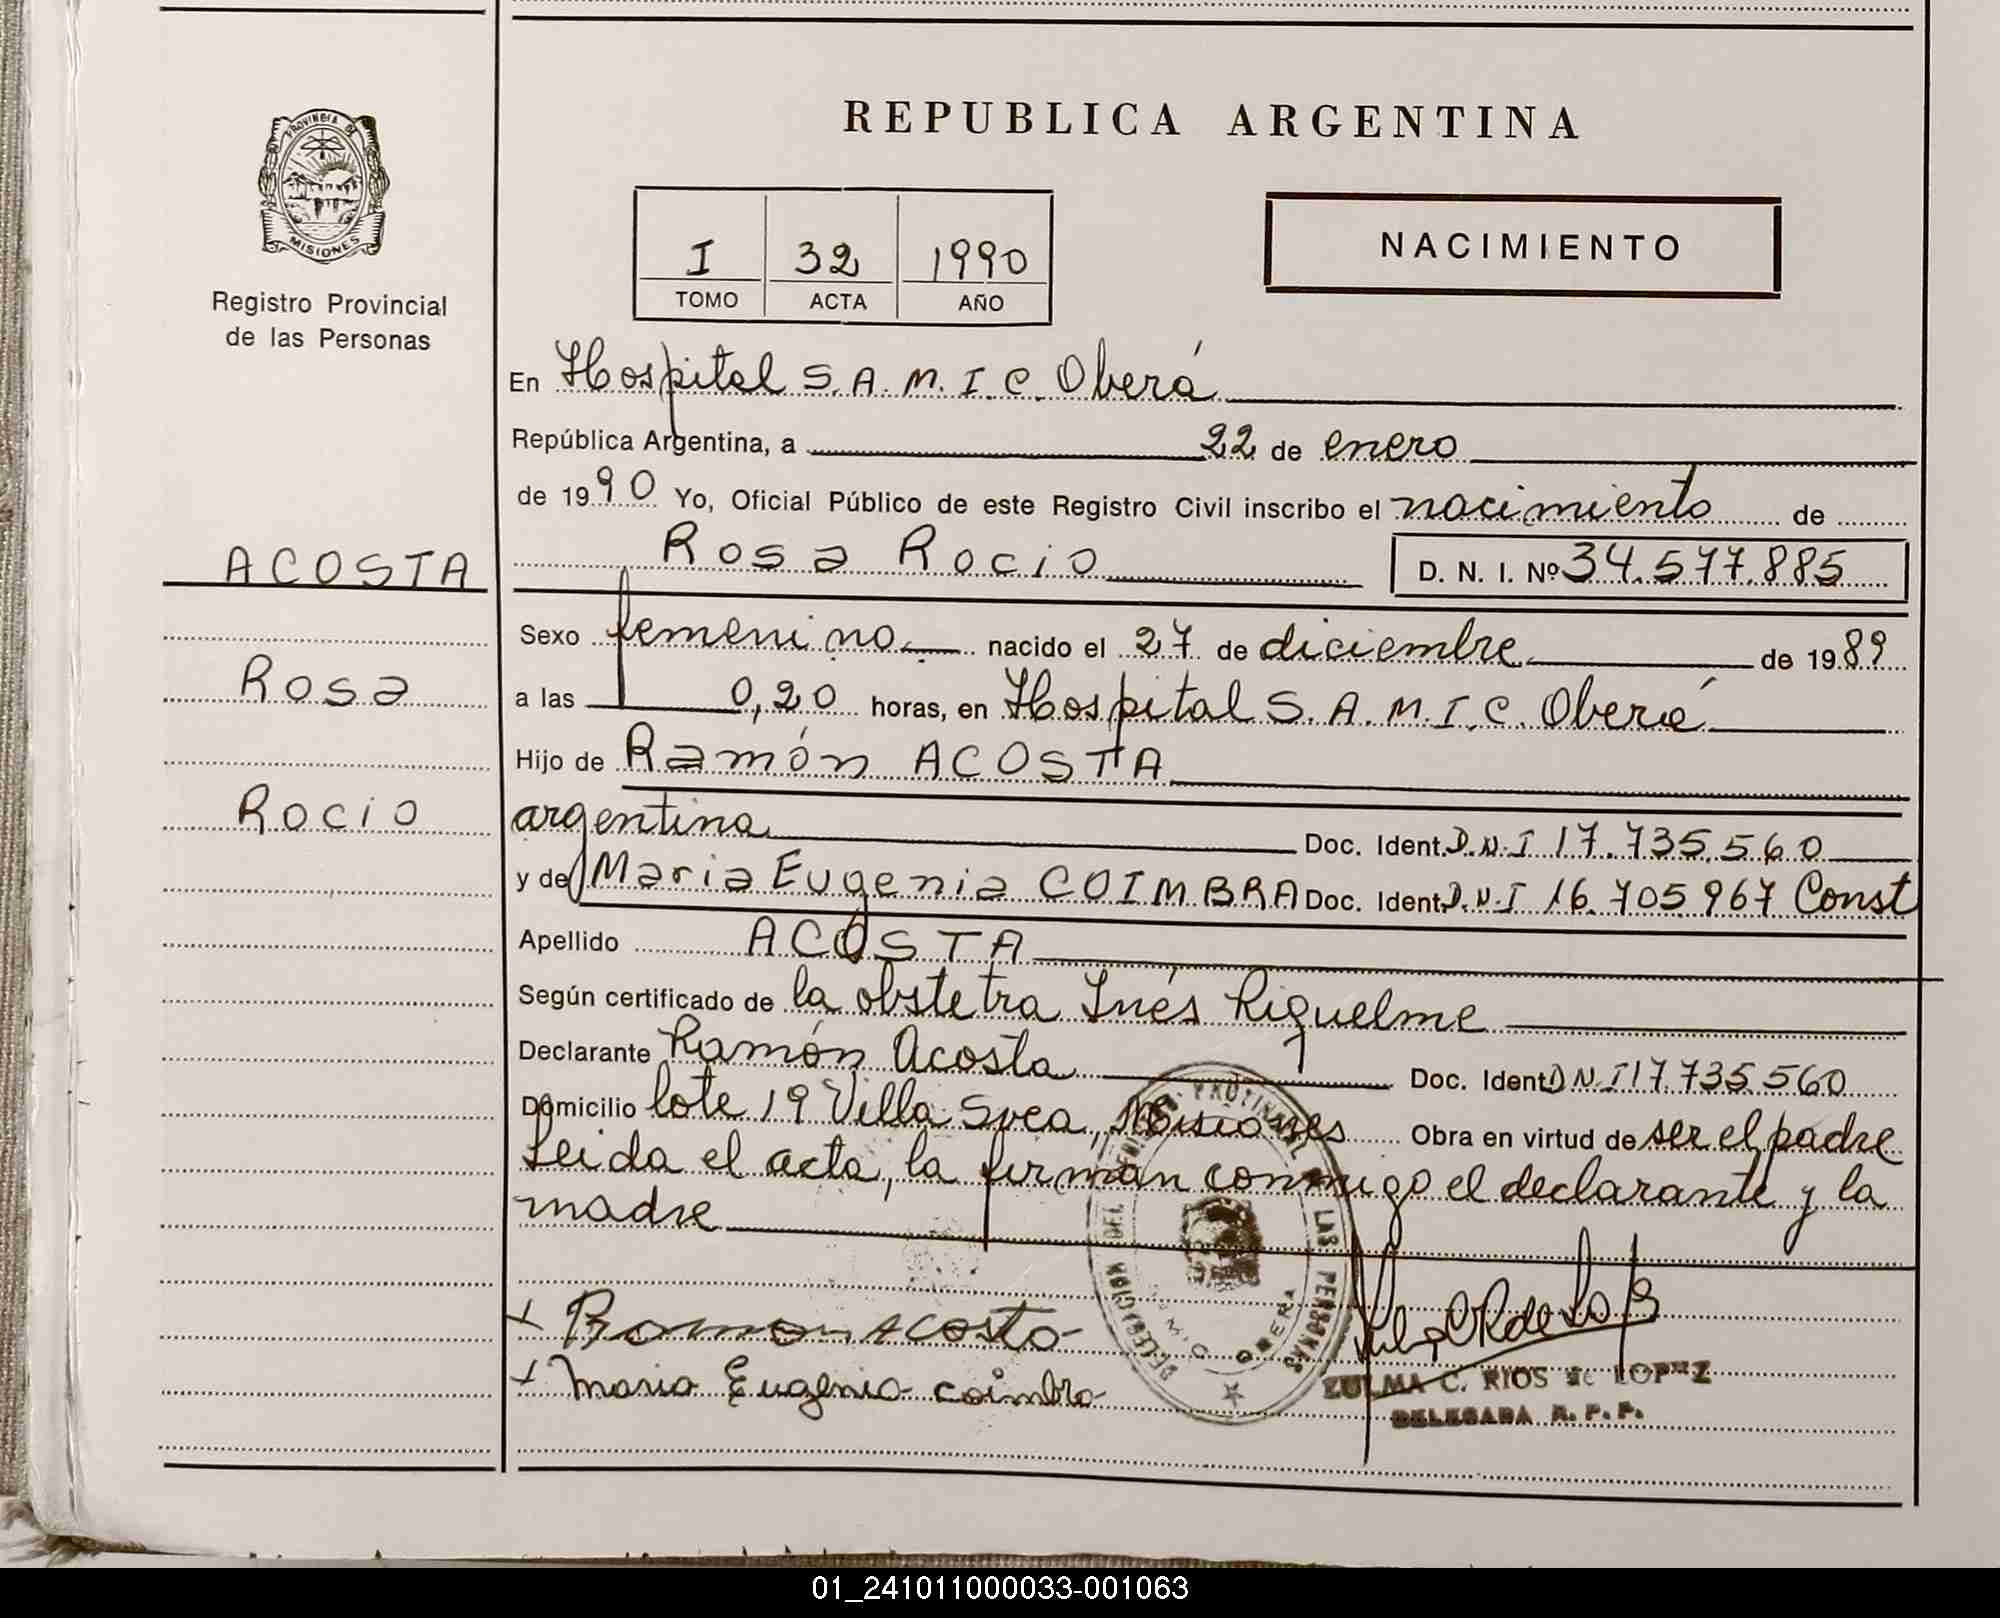 REPUBLICA ARGENTINA
PROVINCIA DE
MISIONES
Registro Provincial
de las Personas
I 32 1990
TOMO ACTA AÑO
NACIMIENTO
En Hospital S.A.M.I.C. Oberá
República Argentina, a 22 de enero
de 1990 Yo, Oficial Público de este Registro Civil inscribo el nacimiento de
ACOSTA
Rosa Rocio D. N. I. Nº 34.577.885
Sexo femenino nacido el 27 de diciembre de 1989
Rosa
a las 0,20 horas, en Hospital S.A.M.I.C. Oberá
Hijo de Ramón ACOSTA
Rocio
argentina Doc. Ident. D.N.I 17.735.560
y de Maria Eugenia COIMBRA Doc. Ident. D.N.I 16.705.967 Const
Apellido ACOSTA
Según certificado de la obstetra Inés Riquelme
Declarante Ramón Acosta Doc. Ident. DNI 17.735.560
Domicilio lote 19 Villa Svea, Misiones Obra en virtud de ser el padre
Leida el acta, la firman conmigo el declarante y la
madre
Ramon Acosta
Maria Eugenia coimbra
DELEGACION DEL LAS PERSONAS
OBERA
ZULMA C. RIOS de LOPEZ
DELEGADA R. P. P.
01_241011000033-001063